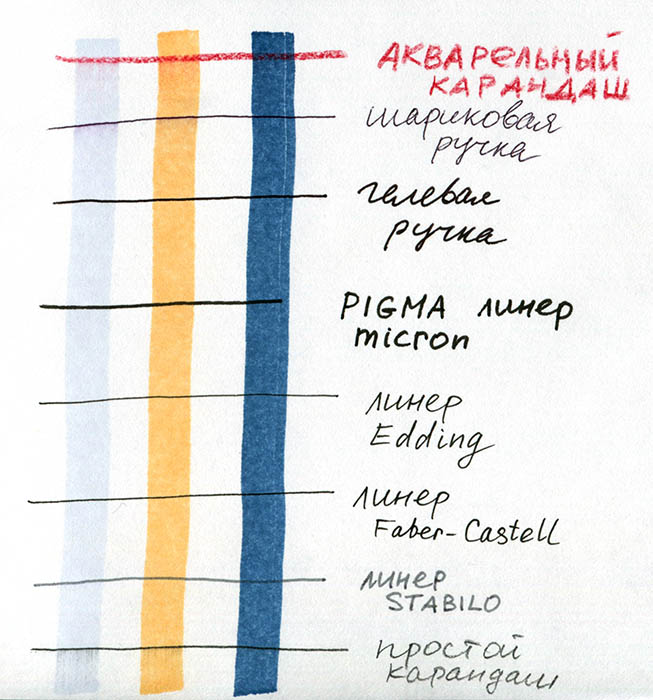 АКВАРЕЛЬНЫЙ
КАРАНДАШ
шариковая
ручка
гелевая
ручка
PIGMA линер
micron
линер
Edding
линер
Faber-Castell
линер
STABILO
простой
карандаш